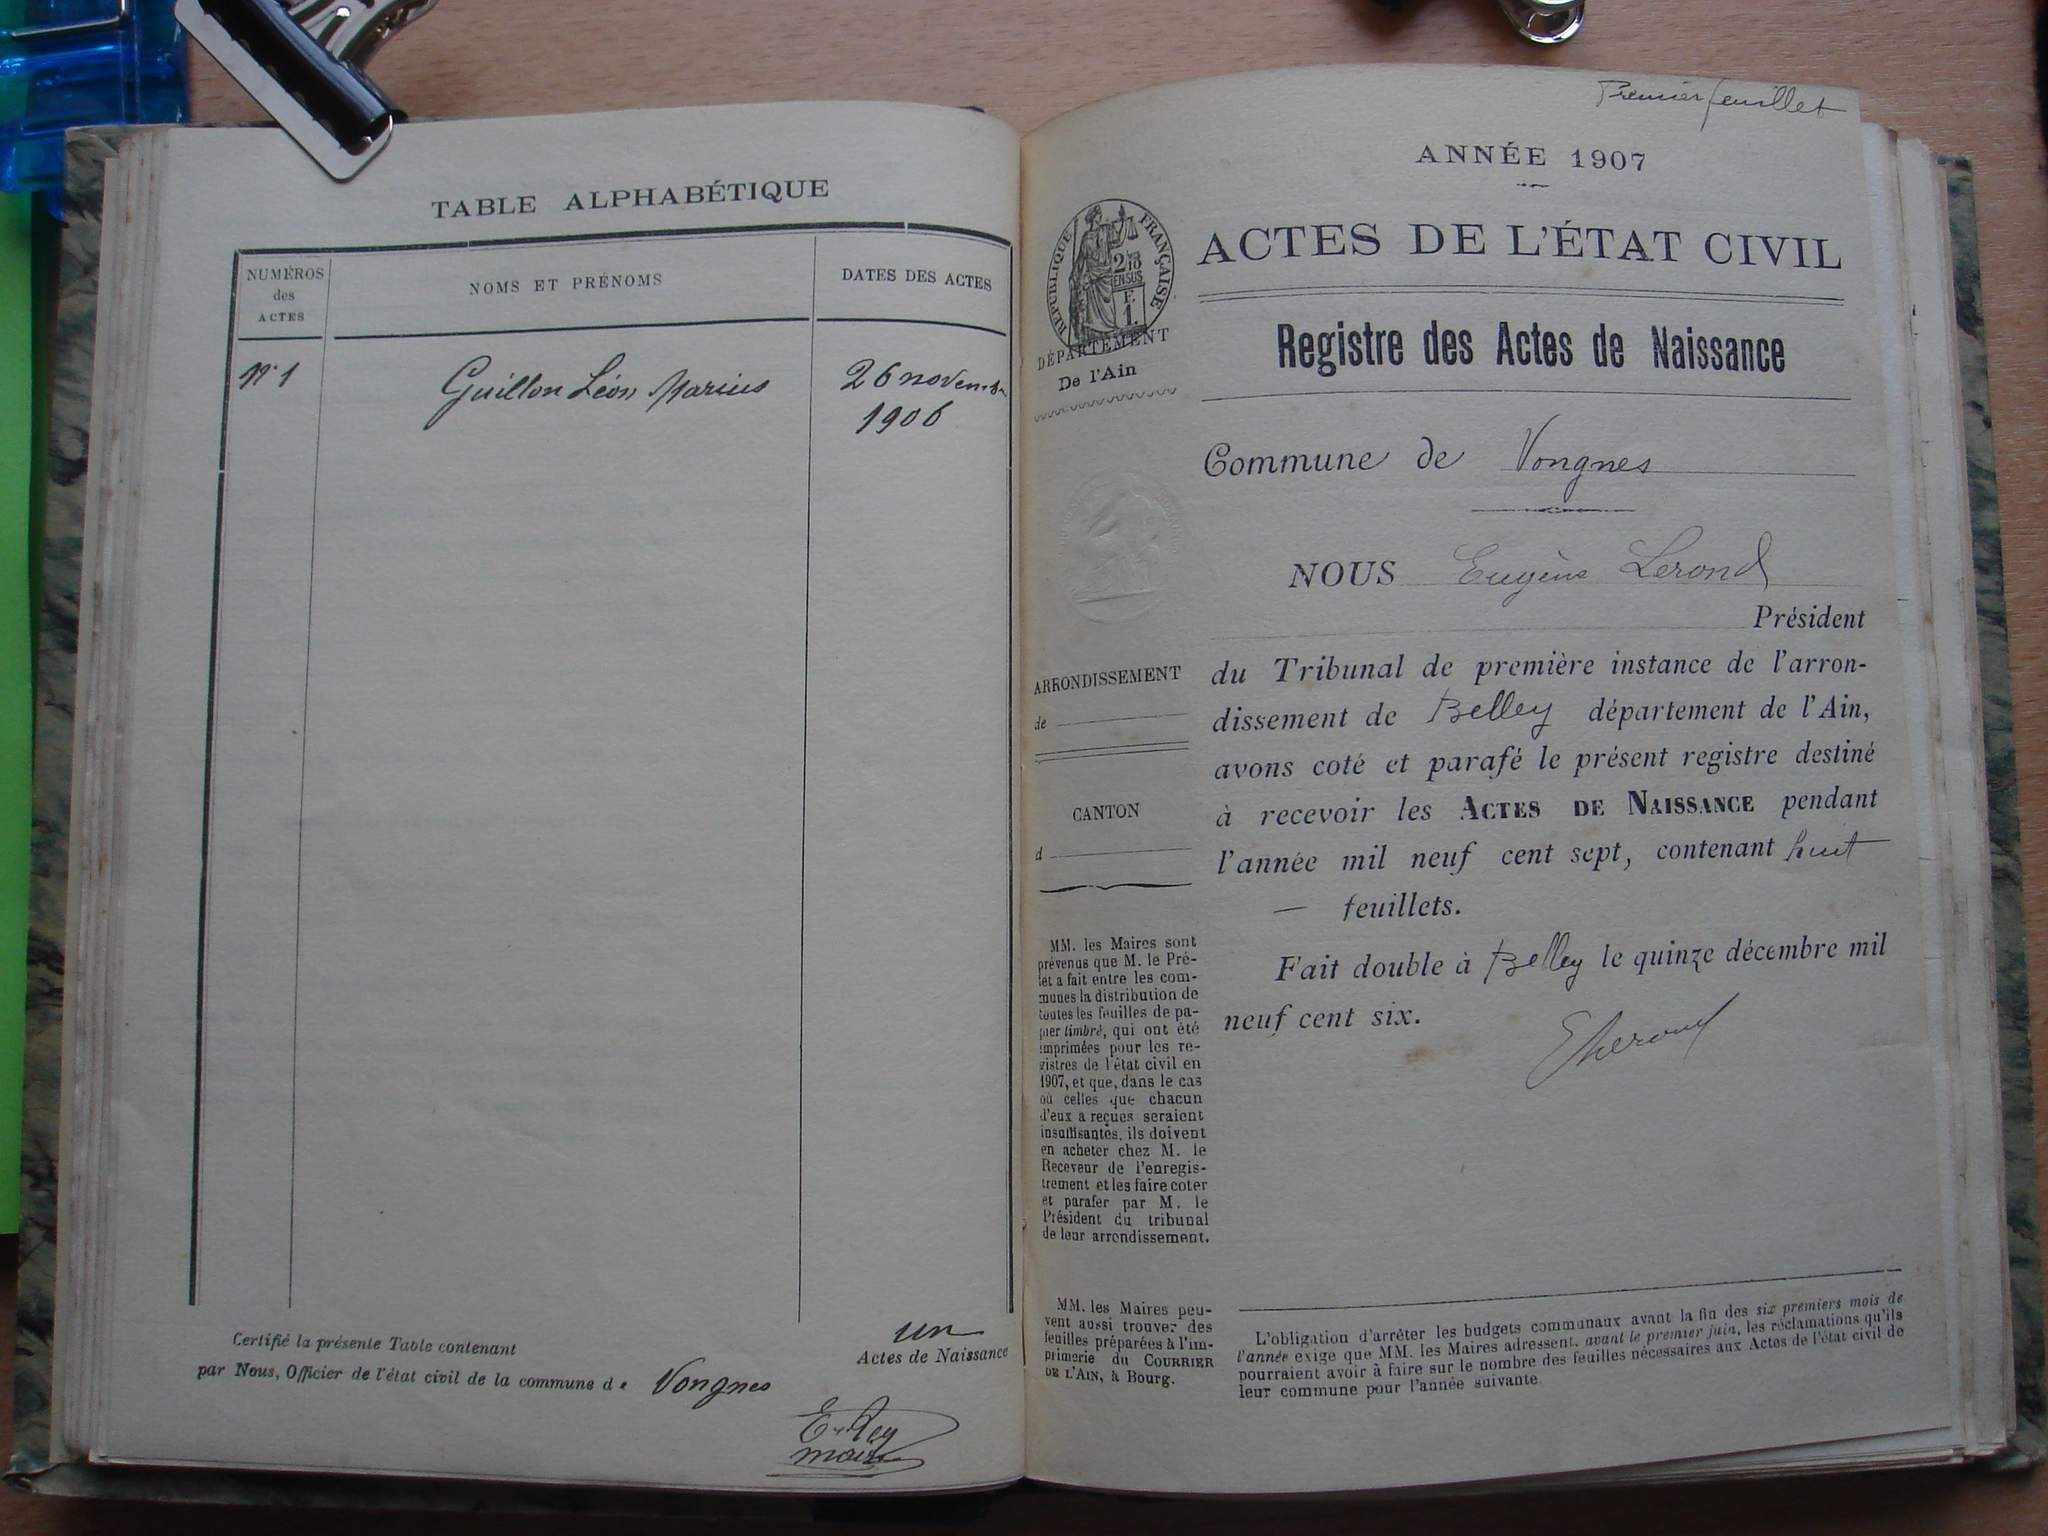 TABLE ALPHABÉTIQUE
NUMÉROS
des
ACTES
NOMS ET PRÉNOMS
DATES DES ACTES
n° 1
Guillon Léon Marius
26 novembre
1906
Certifié la présente Table contenant
un
Actes de Naissance
par Nous, Officier de l'état civil de la commune de Vongnes
E. Rey
maire
Premier feuillet
ANNÉE 1907
RÉPUBLIQUE FRANÇAISE
2/10
EN SUS
F.
1.
ACTES DE L'ÉTAT CIVIL
DÉPARTEMENT
De l'Ain
Registre des Actes de Naissance
Commune de Vongnes
NOUS Eugène Lerond
Président
ARRONDISSEMENT
de
CANTON
d
du Tribunal de première instance de l'arron-
dissement de Belley département de l'Ain,
avons coté et parafé le présent registre destiné
à recevoir les ACTES DE NAISSANCE pendant
l'année mil neuf cent sept, contenant huit
— feuillets.
Fait double à Belley le quinze décembre mil
neuf cent six.
MM. les Maires sont
prévenus que M. le Pré-
fet a fait entre les com-
munes la distribution de
toutes les feuilles de pa-
pier timbré, qui ont été
imprimées pour les re-
gistres de l'état civil en
1907, et que, dans le cas
où celles que chacun
d'eux a reçues seraient
insuffisantes, ils doivent
en acheter chez M. le
Receveur de l'enregis-
trement et les faire coter
et parafer par M. le
Président du tribunal
de leur arrondissement.
MM. les Maires peu-
vent aussi trouver des
feuilles préparées à l'im-
primerie du COURRIER
DE L'AIN, à Bourg.
L'obligation d'arrêter les budgets communaux avant la fin des six premiers mois de
l'année exige que MM. les Maires adressent, avant le premier juin, les réclamations qu'ils
pourraient avoir à faire sur le nombre des feuilles nécessaires aux Actes de l'état civil de
leur commune pour l'année suivante.